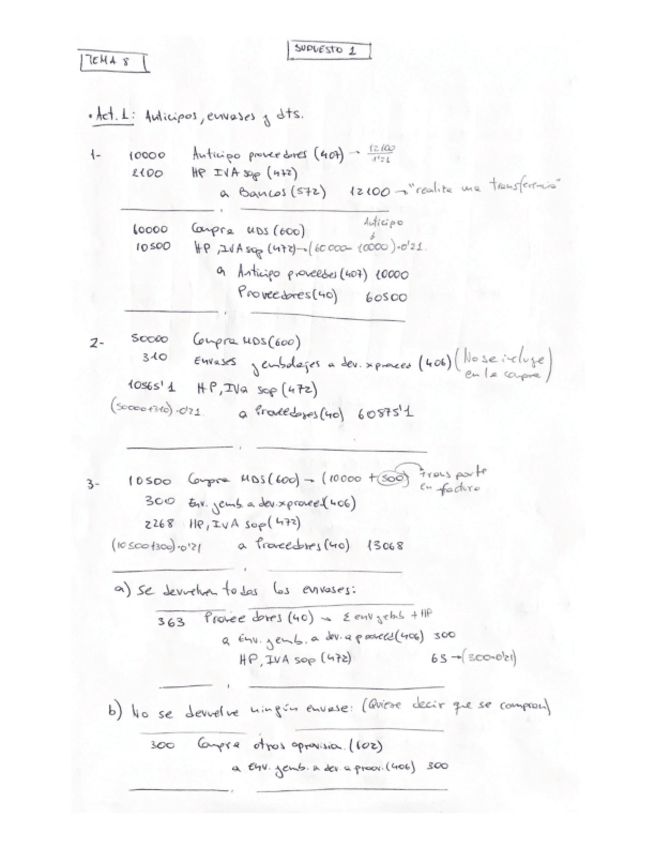 SUPUESTO 1
TEMA 8
• Act. 1: Anticipos, envases y dts.
1- 10000 Anticipo proveedores (407) → 12100/1'21
2100 HP IVA sop (472)
a Bancos (572) 12100 → "realiza una transferencia"
60000 Compra MDS (600) Anticipo
10500 HP, IVA sop (472) → (60000 - 10000)·0'21.
a Anticipo proveedores (407) 10000
Proveedores (40) 60500
2- 50000 Compra MDS (600)
310 Envases y embalajes a dev. x proveed (406) (No se incluye
en la compra)
10565'1 HP, IVA sop (472)
(50000+310)·0'21 a Proveedores (40) 60875'1
3- 10500 Compra MDS (600) → (10000 + 500) Transporte
en factura
300 Env. y emb a dev. x proveed (406)
2268 HP, IVA sop (472)
(10500+300)·0'21 a Proveedores (40) 13068
a) Se devuelven todos los envases:
363 Proveedores (40) → Σ env y emb + HP
a Env. y emb. a dev. a proveed (406) 300
HP, IVA sop (472) 63 → (300·0'21)
b) No se devuelve ningún envase: (Quiere decir que se compran)
300 Compra otros aprovisio. (602)
a env. y emb. a dev a proov. (406) 300